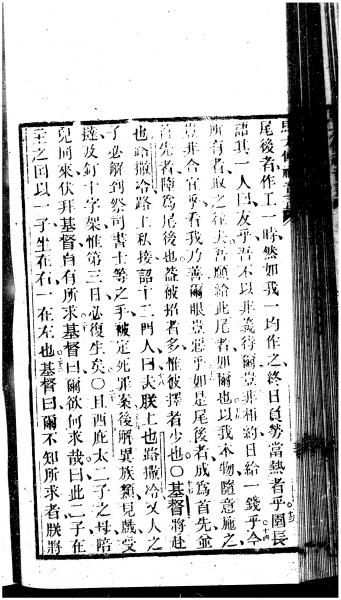 尾後者作工一時然如我一均作之終日負勞當熱者乎園長
語其一人曰友乎吾不以非義待爾豈非相約日給一錢乎今
所有者取之往夫吾願給此尾者如爾也以我本物隨意施之
豈非合宜乎看我乃善爾眼豈惡乎如是尾後者成為首先並
首先者降為尾後也蓋被招者多惟被擇者少也〇基督將赴
也路撒冷路上私接詔十二門人曰夫朕上也路撒冷又人之
子必解到祭司書士等之手被定死罪案後解異族類見戲受
撻及釘十字架惟第三日必復生矣〇且西庇太二子之母陪
兒同來伏拜基督自有所求基督曰爾欲何求哉曰此二子在
王之國以一子坐在右一在左也基督曰爾不知所求者朕將